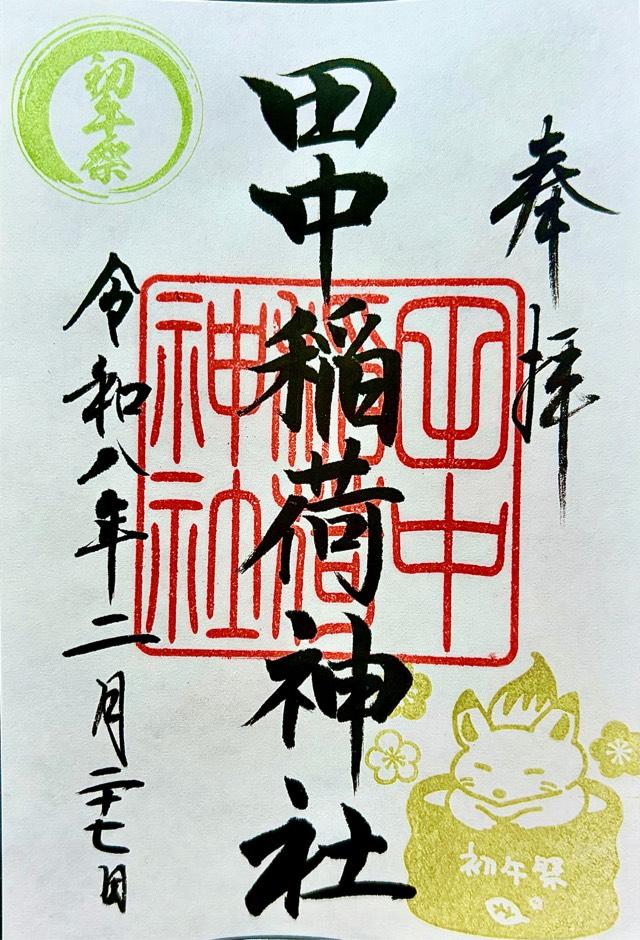 奉拝
田中稲荷神社
田中稲荷神社
令和八年二月二十七日
初午祭
初午祭